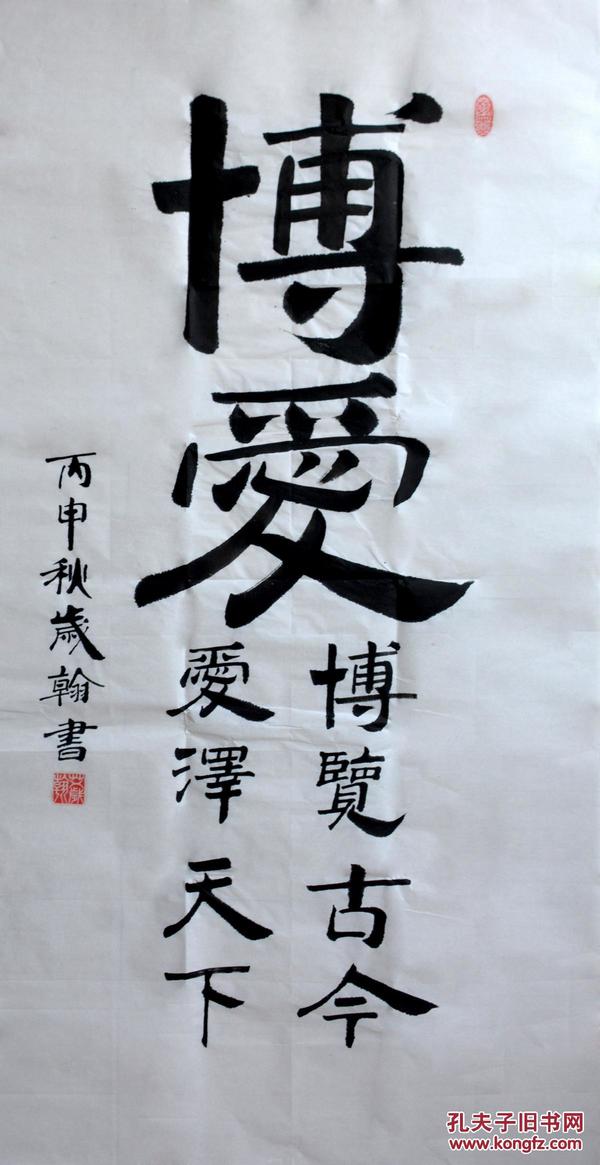 博愛
博覽古今
愛澤天下
丙申秋歲翰書
孔夫子旧书网
www.kongfz.com